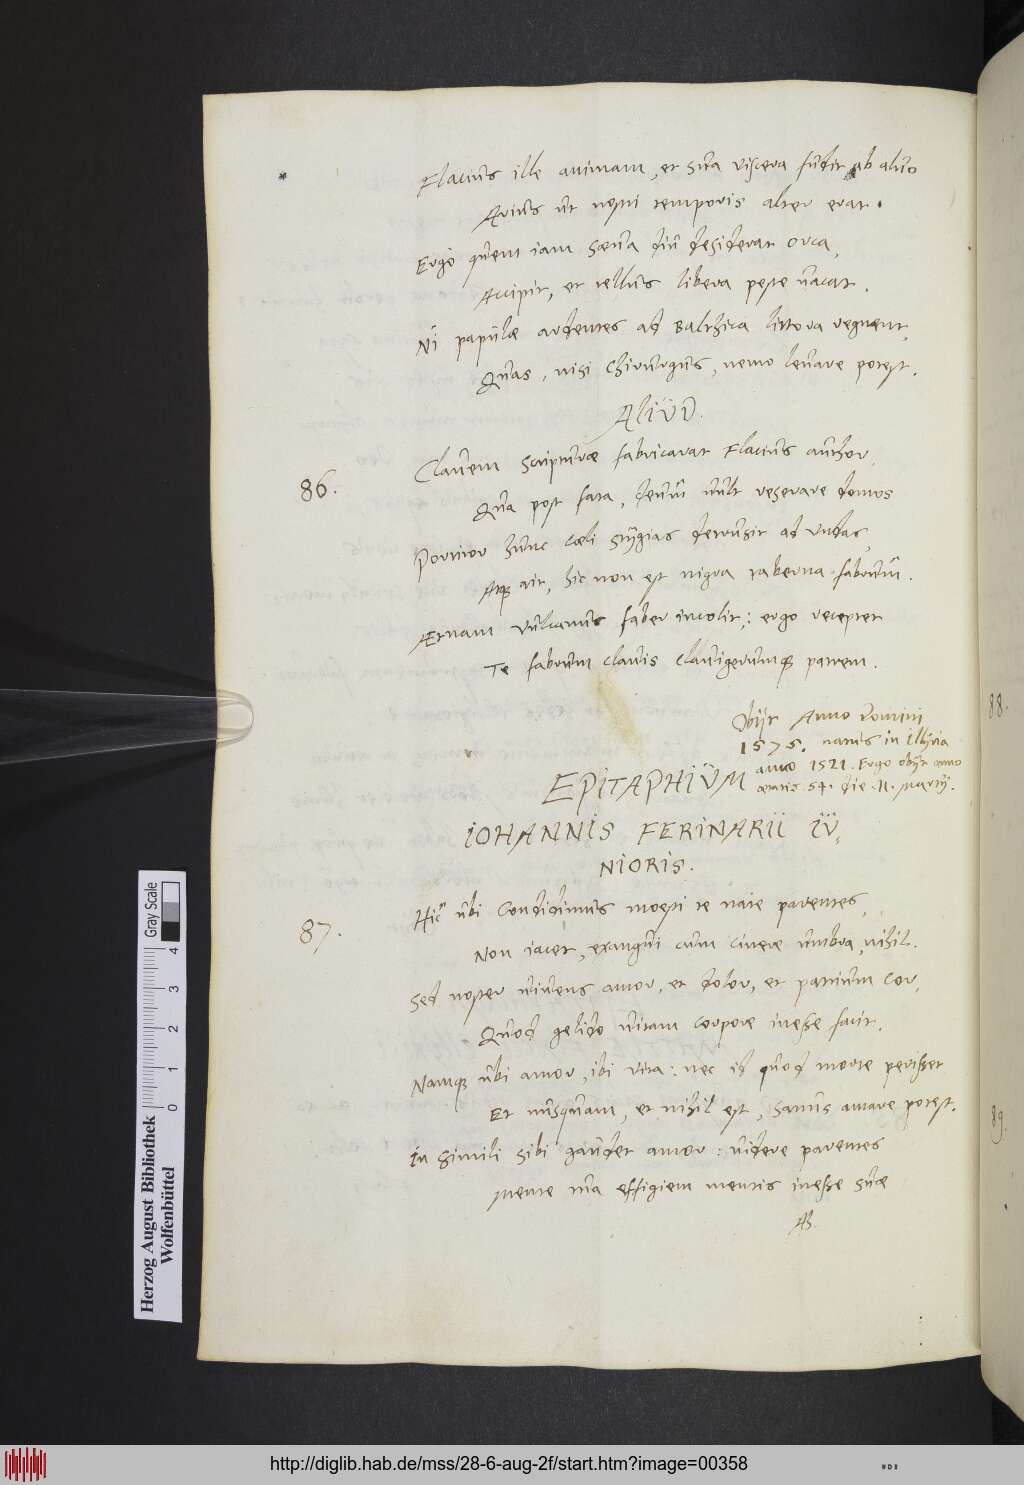 Flacius ille animam, et sua viscera fudit ab aluo
Arius ut nostri temporis alter erat.
Ergò quem iam saeua diu desiderat orca,
Accipit, et tellus libera peste uacat.
Ni papulae ardentes ad Balthica littora regnent,
Quas, nisi Chirurgus, nemo leuare potest.
ALIUD.
86.
Clauem scripturae fabricarat Flacius author,
Qua post fata, deum uult reserare domos
Portitor hunc caeli stygias detrusit ad undas,
Atque ait, hic non est nigra taberna fabrum.
AEtnam Vulcanus faber incolit; ergo receptet
Te fabrum clauis clauigerumque patrem.
Obijt Anno Domini
1575. natus in Illyria
anno 1521. Ergo obijt anno
aetatis 54. die 11. Martij.
EPITAPHIUM
IOHANNIS FERINARII IU,
NIORIS.
87.
Hic ubi condidimus moesti te nate parentes,
Non iacet, exangui cum cinere umbra, nihil.
Sed noster uiuens amor, et dolor, et patrium cor,
Quod gelido uitam corpore inesse facit.
Namque ubi amor, ibi vita: nec id quod morte perisset
Et nusquam, et nihil est, sanus amare potest.
In simili sibi gaudet amor: uidere parentes
Mente tua effigiem mentis inesse suae
88.
89.
Herzog August Bibliothek
Wolfenbüttel
0 1 2 3 4
Gray Scale
http://diglib.hab.de/mss/28-6-aug-2f/start.htm?image=00358